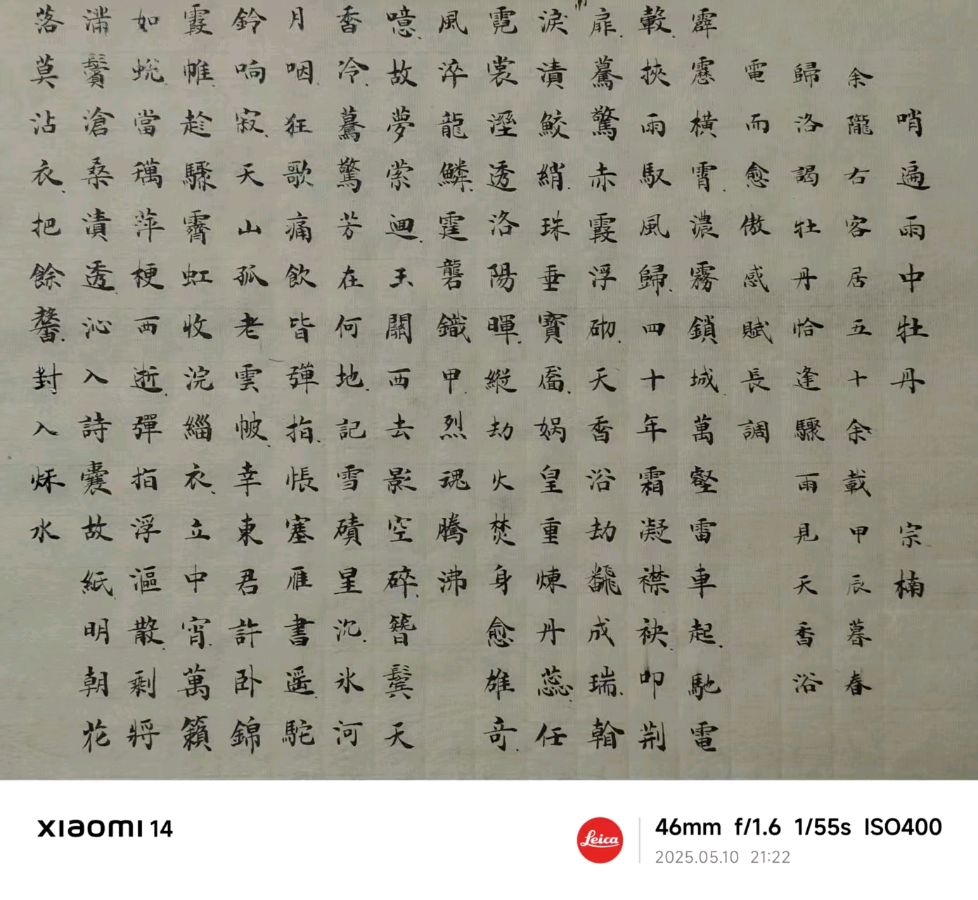 哨遍雨中牡丹 宗楠
余隴右客居五十余載甲辰暮春
歸洛謁牡丹恰逢驟雨見天香浴
電而愈傲感賦長調
霹靂橫霄濃霧鎖城萬壑雷車起.馳電
轂挾雨馭風歸.四十年霜凝襟袂叩荆
扉.驀驚赤霞浮砌.天香浴劫翻成瑞.翰
淚漬鮫綃.珠垂寶靨.媧皇重煉丹蕊.任
霓裳溼透洛陽暉.縱劫火焚身愈雄奇.
風淬龍鱗.霆礱鐵甲.烈魂騰沸
噫.故夢縈迴.玉關西去影空碎.簪鬢天
香冷.驀驚芳在何地.記雪磧星沉.冰河
月咽.狂歌痛飲皆彈指.悵塞雁書遥.駝
鈴响寂.天山孤老雲帔.幸東君許卧錦
霞帷.趁驟霽虹收浣緇衣.立中宵萬籟
如蛻.當萍梗西逝.彈指浮漚散.剩將
滿鬢滄桑漬透.沁入詩囊故紙.明朝花
落莫沾衣.把餘馨.對入秌水
XIAOMI 14
Leica
46mm f/1.6 1/55s ISO400
2025.05.10 21:22